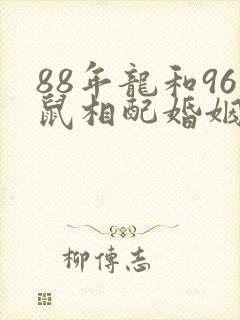 88年龍和96
鼠相配婚姻
柳傳志